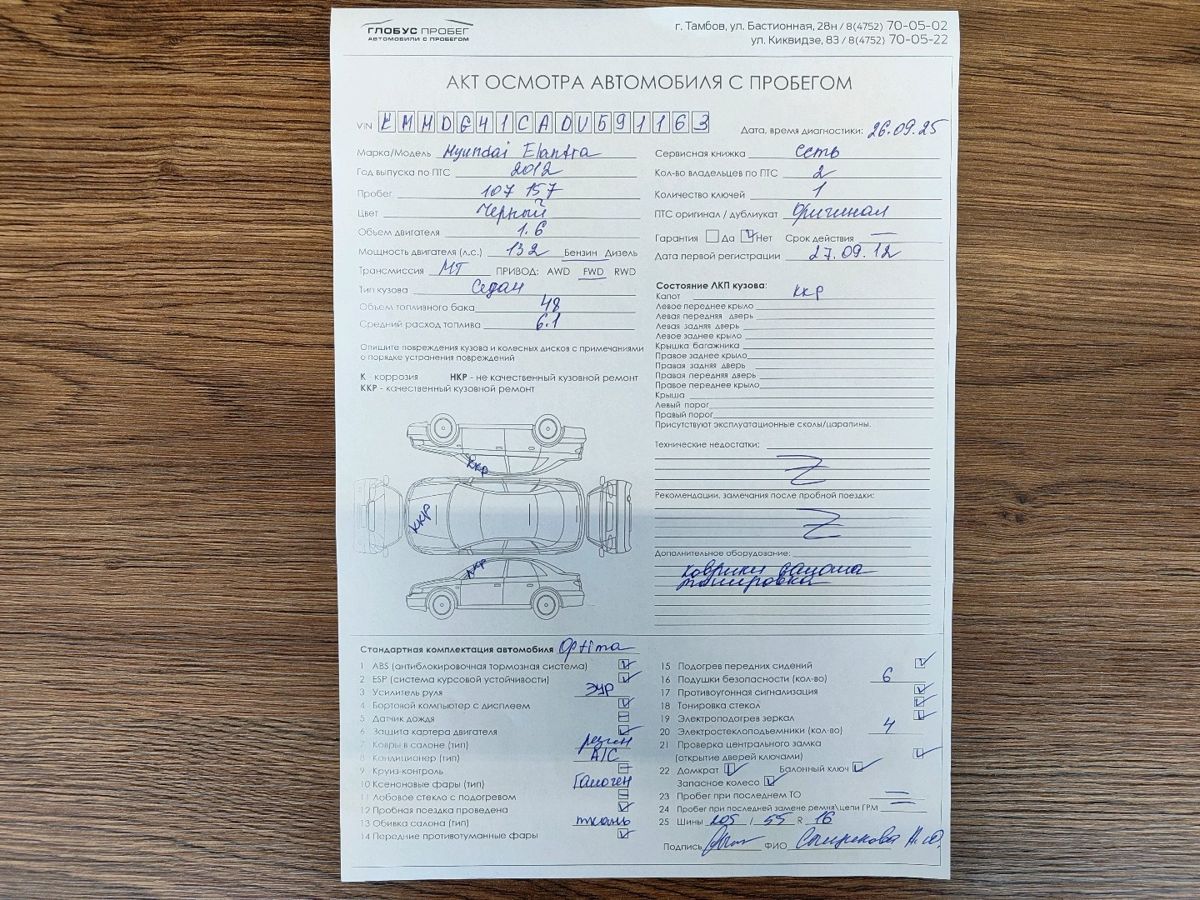 ГЛОБУС ПРОБЕГ
АВТОМОБИЛИ С ПРОБЕГОМ
г. Тамбов, ул. Бастионная, 28н / 8(4752) 70-05-02
ул. Киквидзе, 83 / 8(4752) 70-05-22
АКТ ОСМОТРА АВТОМОБИЛЯ С ПРОБЕГОМ
VIN KMHDG41CADU591163
Дата, время диагностики: 26.09.25
Марка/Модель Hyundai Elantra
Год выпуска по ПТС 2012
Пробег 107 157
Цвет Черный
Объем двигателя 1.6
Мощность двигателя (л.с.) 132 Бензин Дизель
Трансмиссия МТ ПРИВОД: AWD FWD RWD
Тип кузова Седан
Объем топливного бака 48
Средний расход топлива 6.1
Опишите повреждения кузова и колесных дисков с примечаниями
о порядке устранения повреждений
К - коррозия НКР - не качественный кузовной ремонт
ККР - качественный кузовной ремонт
ккр
ККР
ккр
Сервисная книжка есть
Кол-во владельцев по ПТС 2
Количество ключей 1
ПТС оригинал / дубликат Оригинал
Гарантия Да Нет Срок действия —
Дата первой регистрации 27.09.12
Состояние ЛКП кузова:
Капот ккр
Левое переднее крыло
Левая передняя дверь
Левая задняя дверь
Левое заднее крыло
Крышка багажника
Правое заднее крыло
Правая задняя дверь
Правая передняя дверь
Правое переднее крыло
Крыша
Левый порог
Правый порог
Присутствуют эксплуатационные сколы/царапины.
Технические недостатки:
Рекомендации, замечания после пробной поездки:
Дополнительное оборудование:
коврики салона
тонировка
Стандартная комплектация автомобиля Optima
1 ABS (антиблокировочная тормозная система)
2 ESP (система курсовой устойчивости)
3 Усилитель руля ЭУР
4 Бортовой компьютер с дисплеем
5 Датчик дождя
6 Защита картера двигателя
7 Ковры в салоне (тип) резин
8 Кондиционер (тип) A/C
9 Круиз-контроль
10 Ксеноновые фары (тип) Галоген
11 Лобовое стекло с подогревом
12 Пробная поездка проведена
13 Обивка салона (тип) ткань
14 Передние противотуманные фары
15 Подогрев передних сидений
16 Подушки безопасности (кол-во) 6
17 Противоугонная сигнализация
18 Тонировка стекол
19 Электроподогрев зеркал
20 Электростеклоподъемники (кол-во) 4
21 Проверка центрального замка
(открытие дверей ключами)
22 Домкрат Балонный ключ
Запасное колесо
23 Пробег при последнем ТО —
24 Пробег при последней замене ремня\цепи ГРМ —
25 Шины 205 / 55 R 16
Подпись ФИО